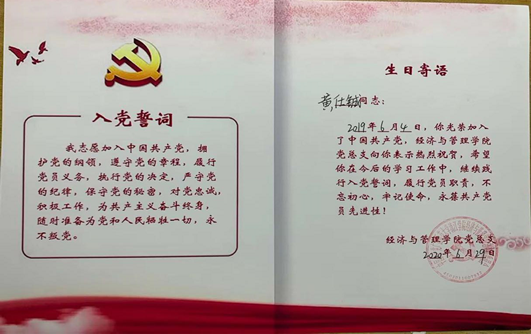 入党誓词
我志愿加入中国共产党，拥
护党的纲领，遵守党的章程，履行
党员义务，执行党的决定，严守党
的纪律，保守党的秘密，对党忠诚，
积极工作，为共产主义奋斗终身，
随时准备为党和人民牺牲一切，永
不叛党。
生日寄语
黄仕鋮同志：
2019年6月4日，你光荣加入
了中国共产党，经济与管理学院
党总支向你表示热烈祝贺，希望
你在今后的学习工作中，继续践
行入党誓词，履行党员职责，不
忘初心，牢记使命，永葆共产党
员先进性！
经济与管理学院党总支
2020年6月29日